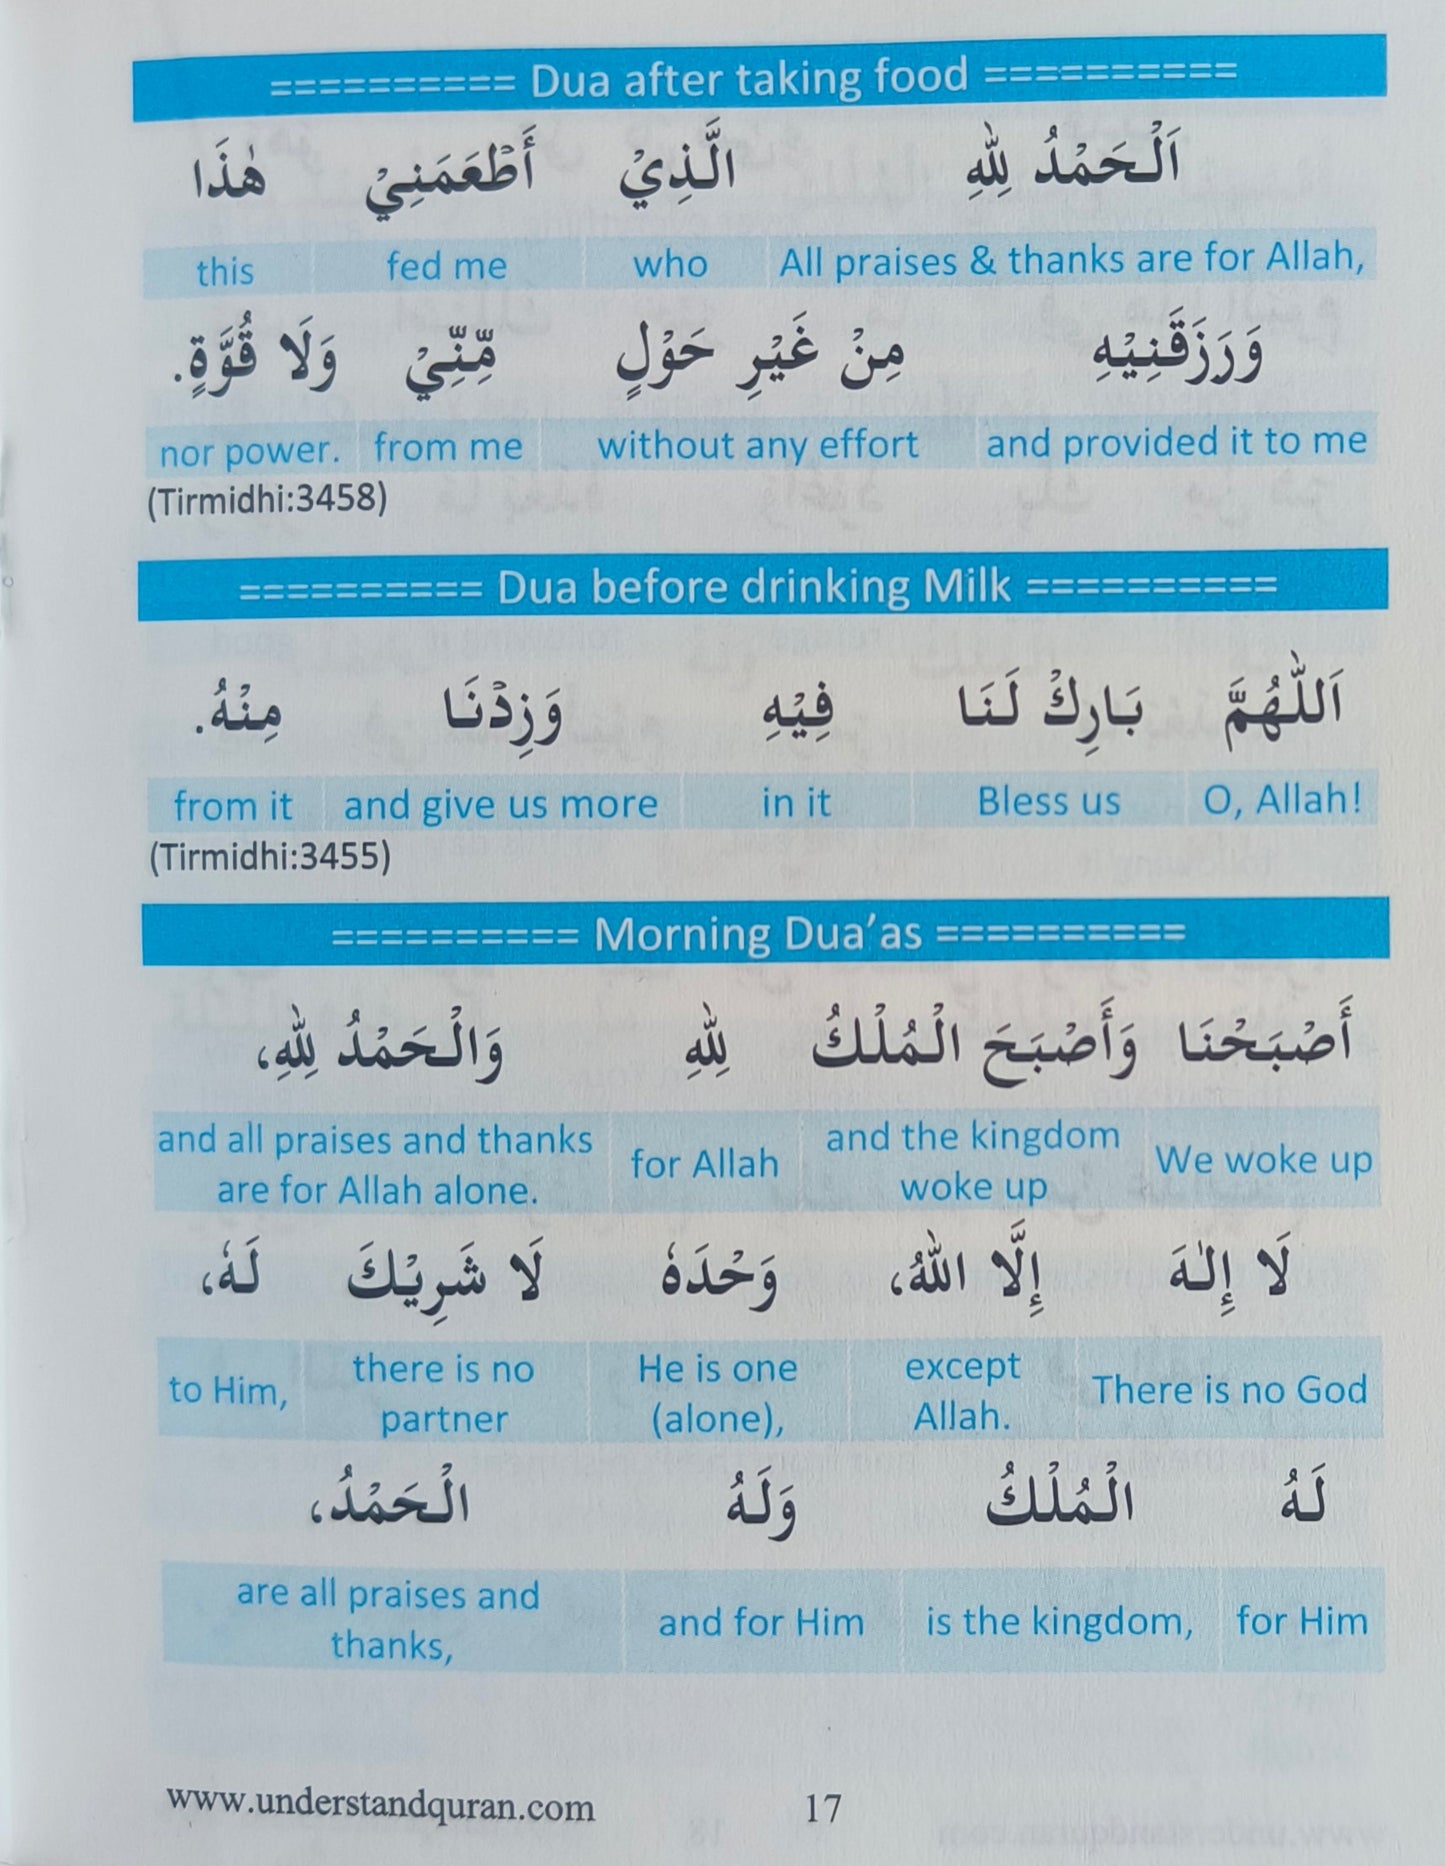 ========== Dua after taking food ==========
اَلْحَمْدُ لِلّٰهِ الَّذِيْ أَطْعَمَنِيْ هٰذَا
All praises & thanks are for Allah, who fed me this
وَرَزَقَنِيْهِ مِنْ غَيْرِ حَوْلٍ مِّنِّيْ وَلَا قُوَّةٍ.
and provided it to me without any effort from me nor power.
(Tirmidhi:3458)
========== Dua before drinking Milk ==========
اَللّٰهُمَّ بَارِكْ لَنَا فِيْهِ وَزِدْنَا مِنْهُ.
O, Allah! Bless us in it and give us more from it
(Tirmidhi:3455)
========== Morning Dua’as ==========
أَصْبَحْنَا وَأَصْبَحَ الْمُلْكُ لِلّٰهِ وَالْحَمْدُ لِلّٰهِ،
We woke up and the kingdom woke up for Allah and all praises and thanks are for Allah alone.
لَا إِلٰهَ إِلَّا اللّٰهُ، وَحْدَهٗ لَا شَرِيْكَ لَهٗ،
There is no God except Allah. He is one (alone), there is no partner to Him,
لَهُ الْمُلْكُ وَلَهُ الْحَمْدُ،
for Him is the kingdom, and for Him are all praises and thanks,
www.understandquran.com 17